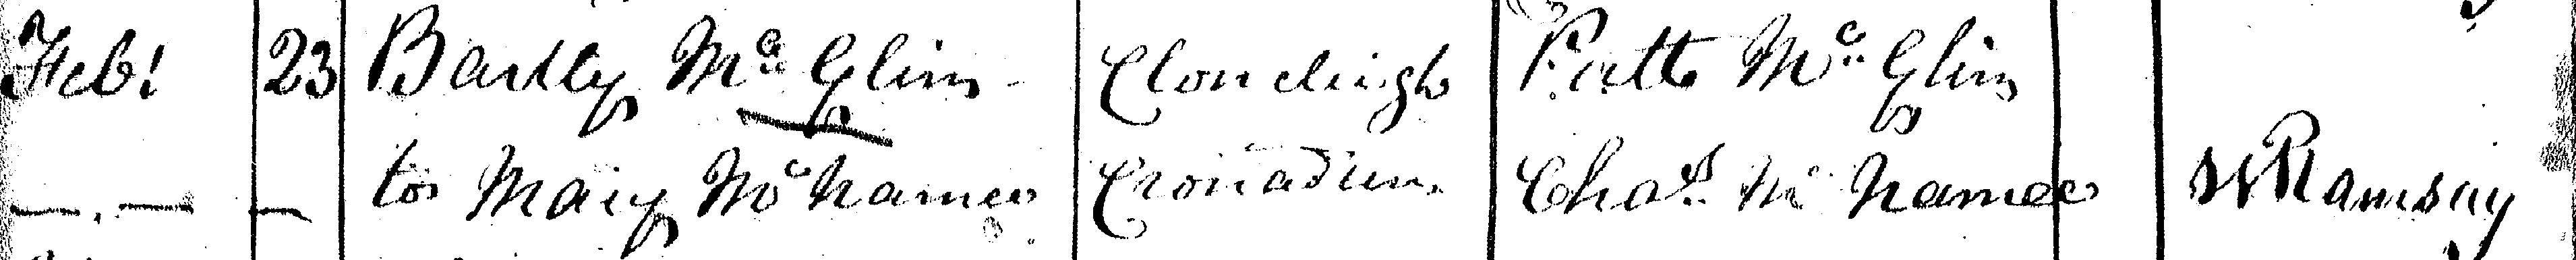 Feb! 23 Bartly Mc Glin Cloncleigh Patt Mc Glin
to Mary Mc Namee Cronadun Chas. Mc Namee W Ramsay